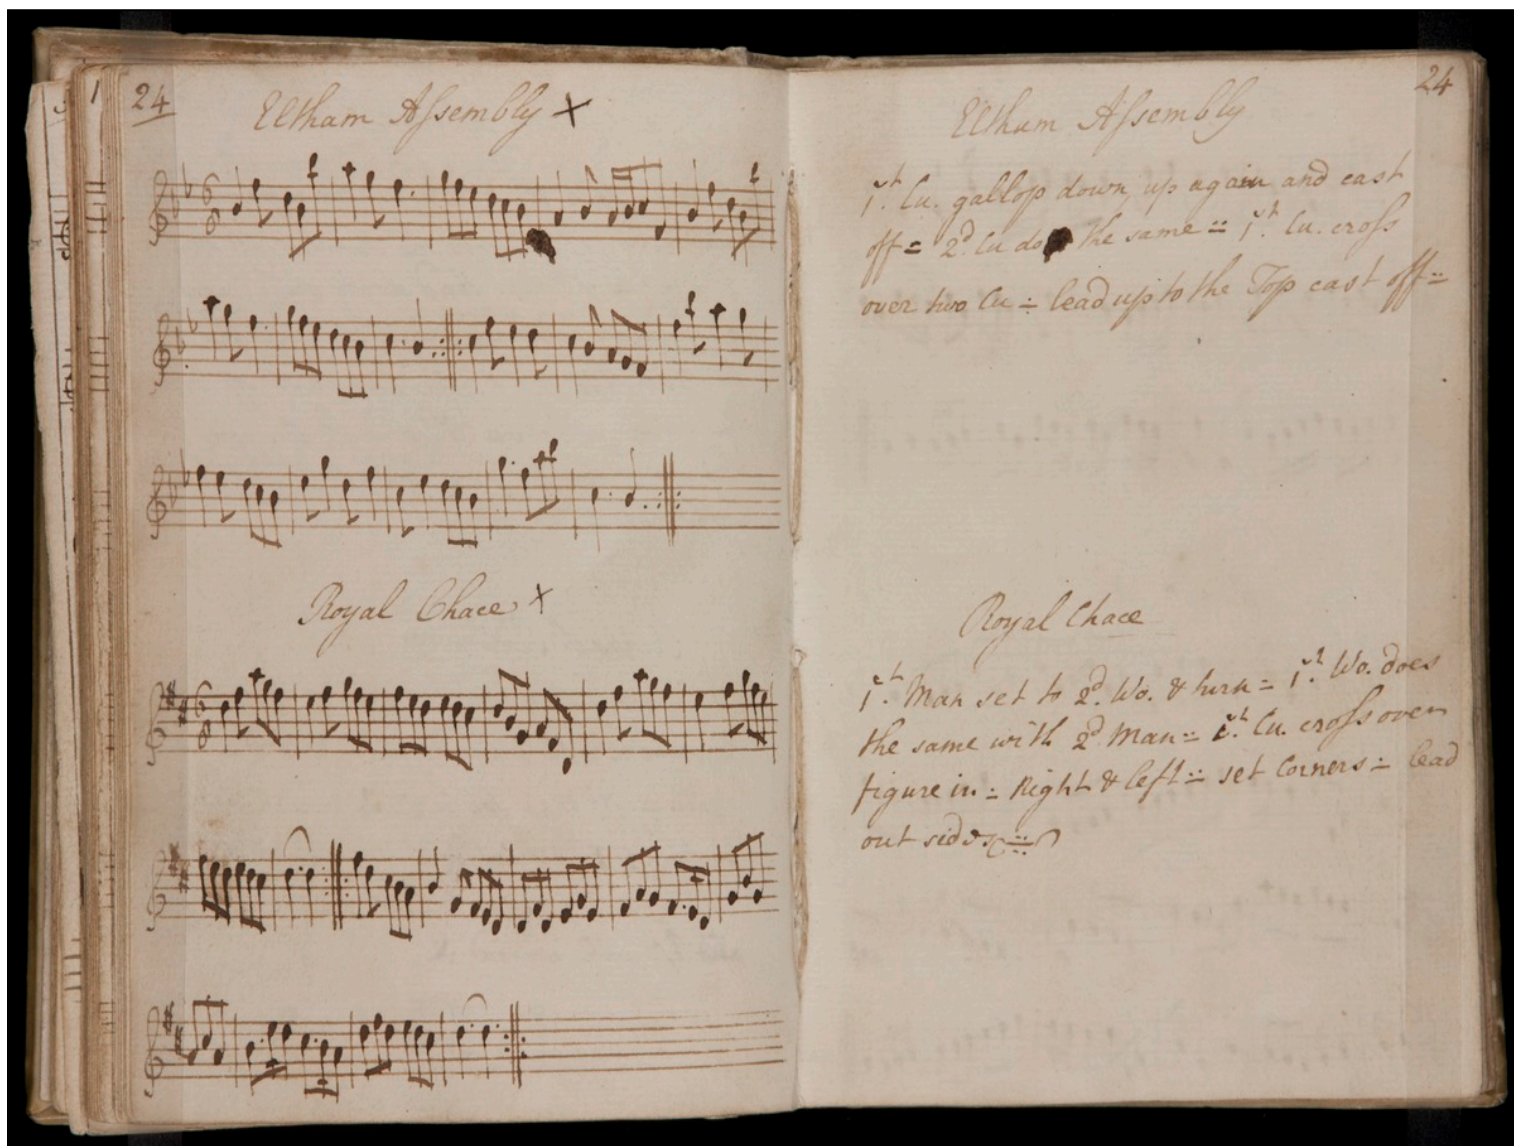 24
Eltham Assembly +
Royal Chace +
24
Eltham Assembly
1st. Cu. gallop down, up again and cast
off = 2d. Cu do the same = 1st. Cu. cross
over two Cu = lead up to the Top cast off =
Royal Chace
1st. Man set to 2d. Wo. & turn = 1st. Wo. does
the same with 2d. Man = 1st. Cu. cross over
figure in = Right & left = set Corners = lead
out sides =